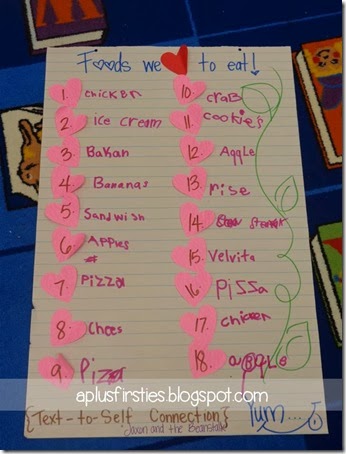 Foods we to eat!
1. chicken
2. ice cream
3. Bakan
4. Bananas
5. Sandwish
6. Apples
7. Pizza
8. Chees
9. Pizza
10. crab
11. cookies
12. Aqqle
13. rise
14.
15. Velvita
16. pizza
17. chicken
18. aqqle
aplusfirsties.blogspot.com
{Text-to-Self Connection}
Jaxon and the Beanstalk
Yum...